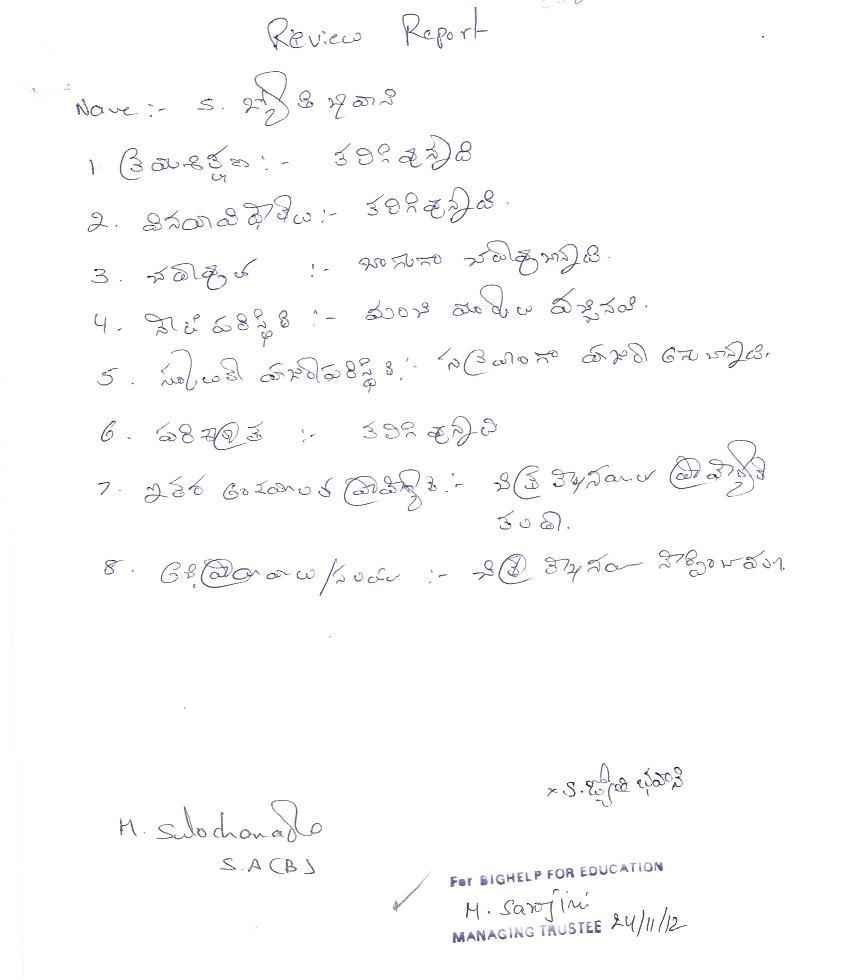 Review Report
Name :- S. జ్యోతి భవాని
1. క్రమశిక్షణ :- కలిగివున్నాది
2. వినయవిధేతలు :- కలిగివున్నాది.
3. చదువుట :- బాగుగా చదువుచున్నాది.
4. నోటి పరిస్థితి :- మంచి మార్కులు వచ్చినవి.
5. స్కూలుకి హాజరుపరిస్థితి :- సక్రమంగా హాజరు అగుచున్నాది.
6. పరిశుభ్రత :- కలిగివున్నాది
7. ఇతర అంశముల ప్రావిణ్యత :- చిత్ర లేఖనములు ప్రావిణ్యత
కలదు.
8. అభిప్రాయాలు/సలహాలు :- చిత్ర లేఖనము నేర్పించవచ్చు.
x S. జ్యోతి భవాని
M. Sulochana
S.A (BS)
For BIGHELP FOR EDUCATION
M. Sarojini
MANAGING TRUSTEE 24/11/12